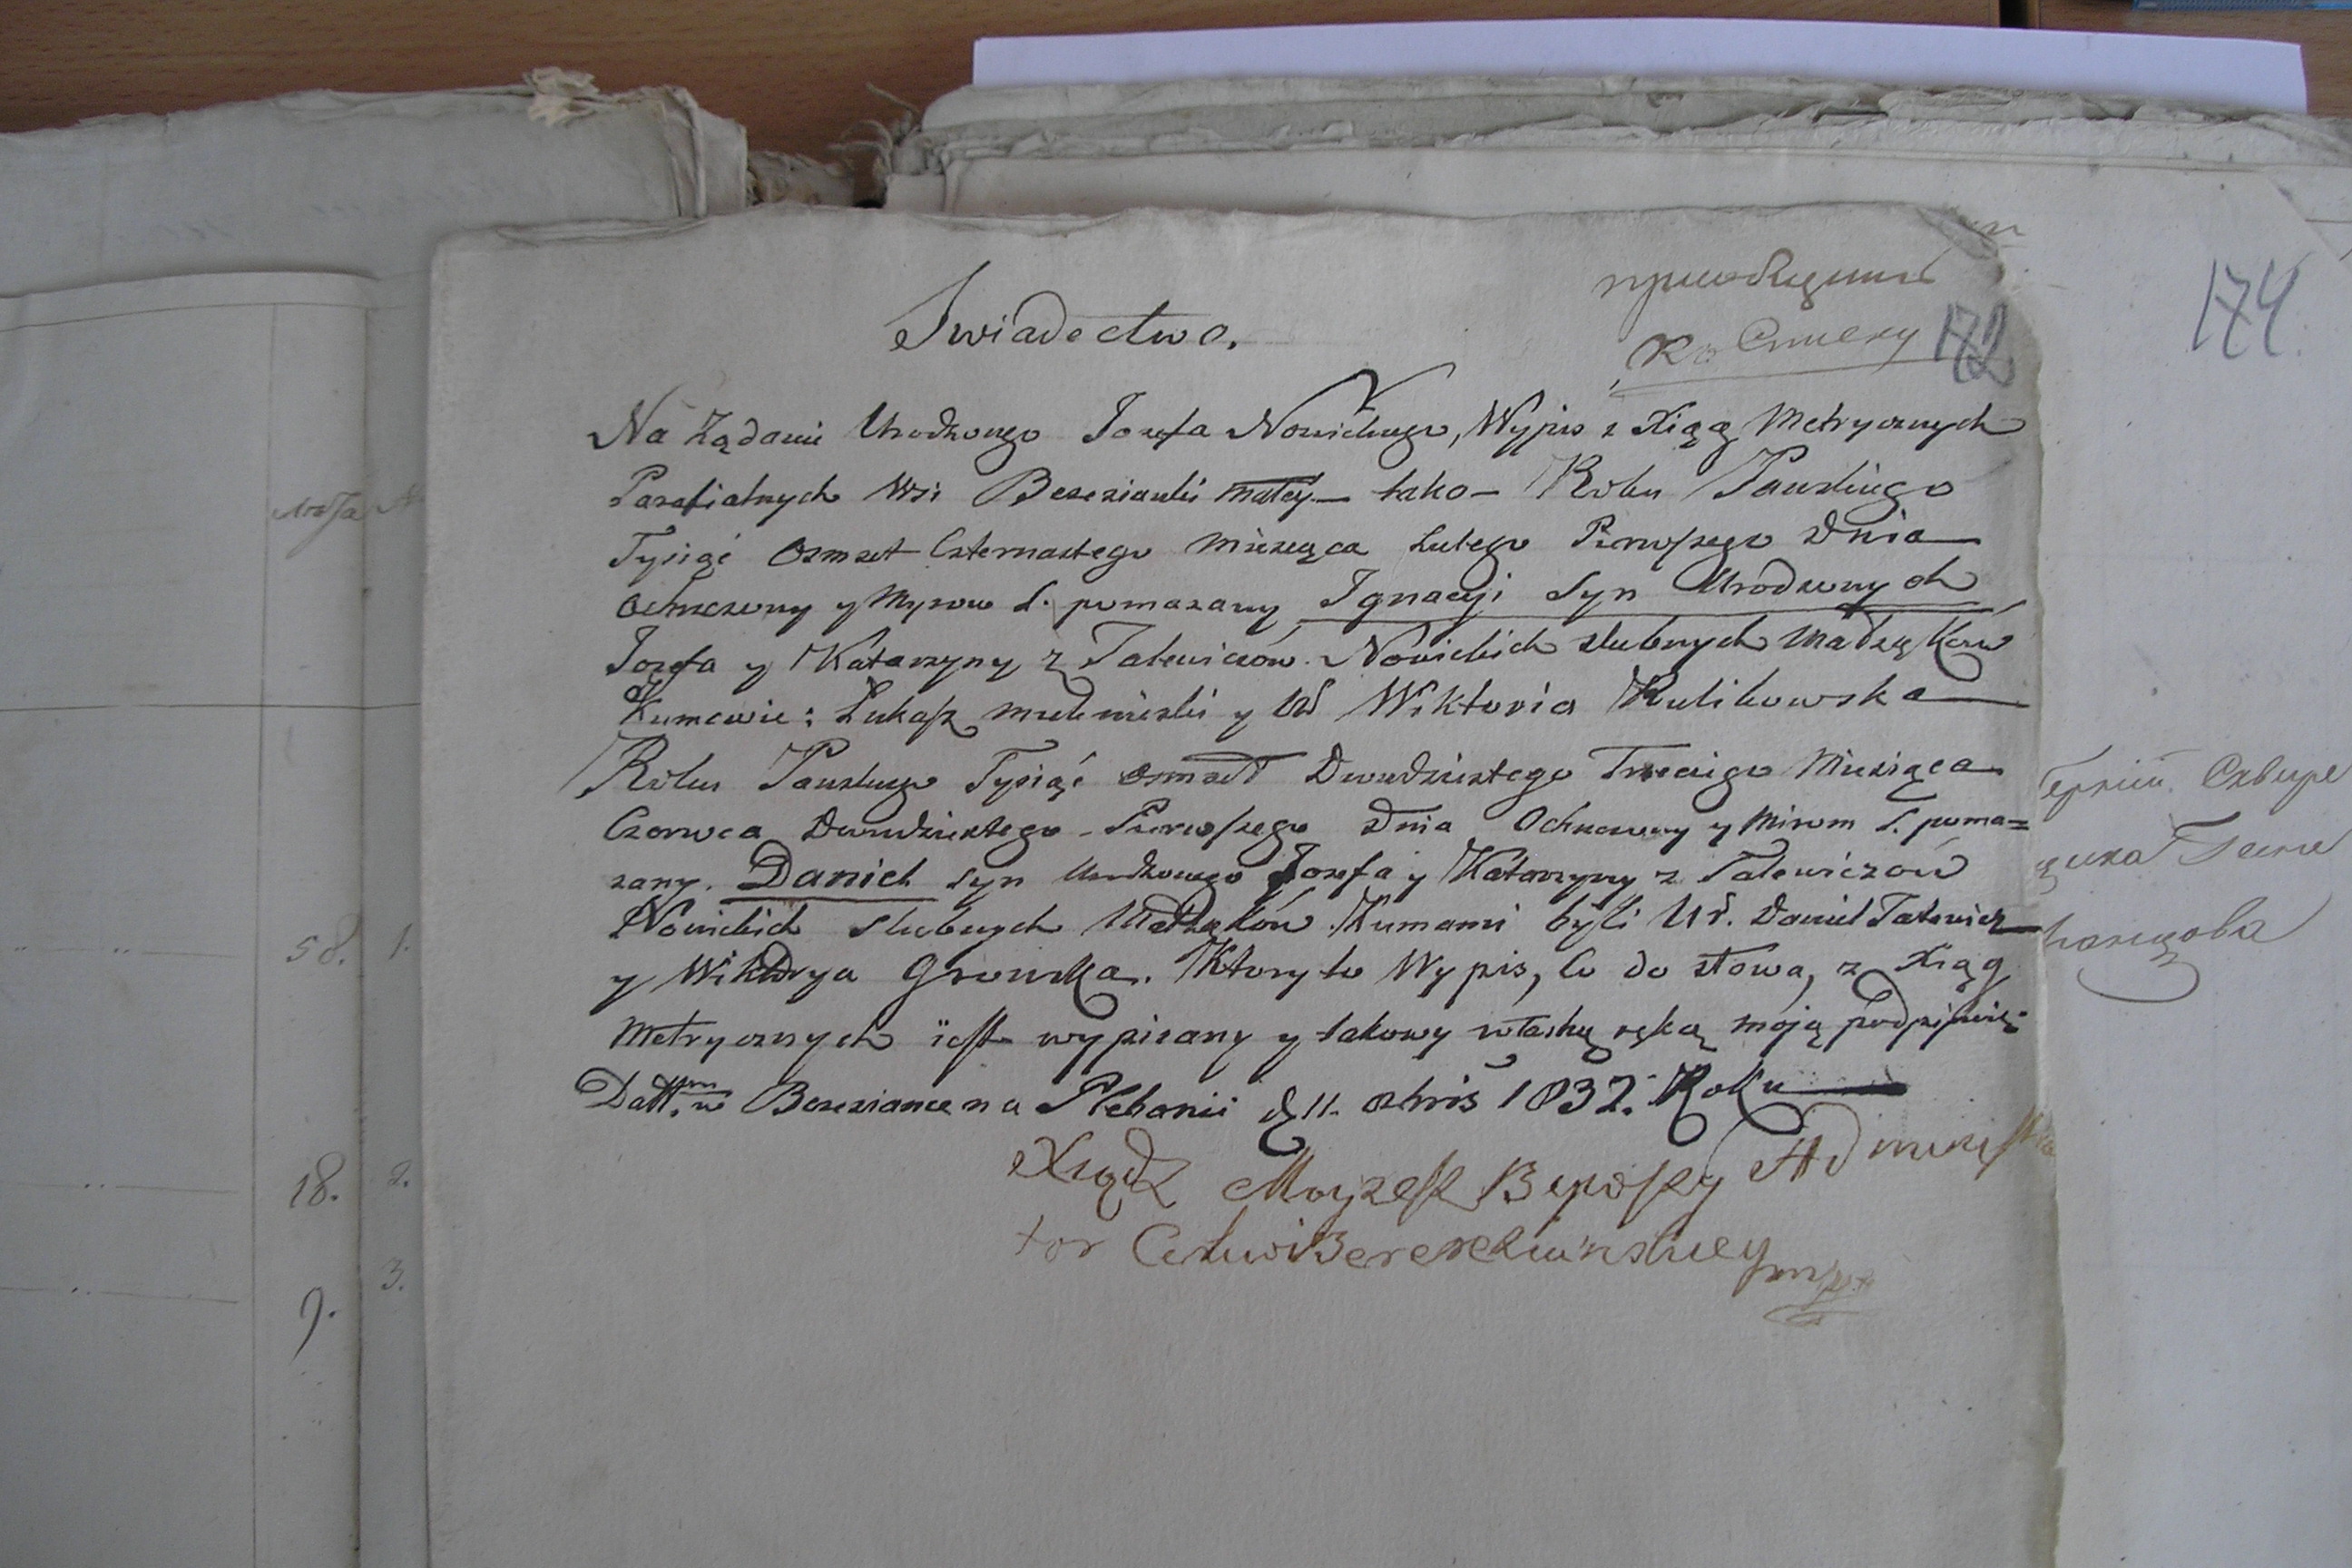 приобщить
къ Списку 172
174
Swiadectwo.
Na Żądanie Urodzonego Jozefa Nowickiego, Wypis z Xiąg Metrycznych
Parafialnych Wsi Berezianki małey – tako – Roku Panskiego
Tysiąć Osmset Czternastego Miesząca Lutego Pierwszego Dnia
Ochrzczony y Myrow S. pomazany Ignacyi Syn Urodzonych
Jozefa y Katarzyny z Talewiczów Nowickich slubnych Małżąków
Kumowie: Łukasz y Ur Wiktoria Kulikowska
Roku Panskiego Tysiąć osmset Dwudziestego Trzeciego Miesiąca
Czerwca Dwudziestego – Pierwszego Dnia Ochrzczony y Mirom S. poma=
zany. Daniel syn Urodzonego Jozefa y Katarzyny z Talewiczów
Nowickich slubnych Małżąków. Kumami byli Ur. Daniel Talewicz
y Wiktorya. Ktory to Wypis, Co do słowa, z Xiąg
Metrycznych iest wypisany y takowy własną ręką moją podpisuię.
Datt. w Bereziance na Plebanii d 11. 1832. Roku
Xiądz Moyzesz Administra
tor Cerkwi mp
58. 1.
18. 2.
9. 3.